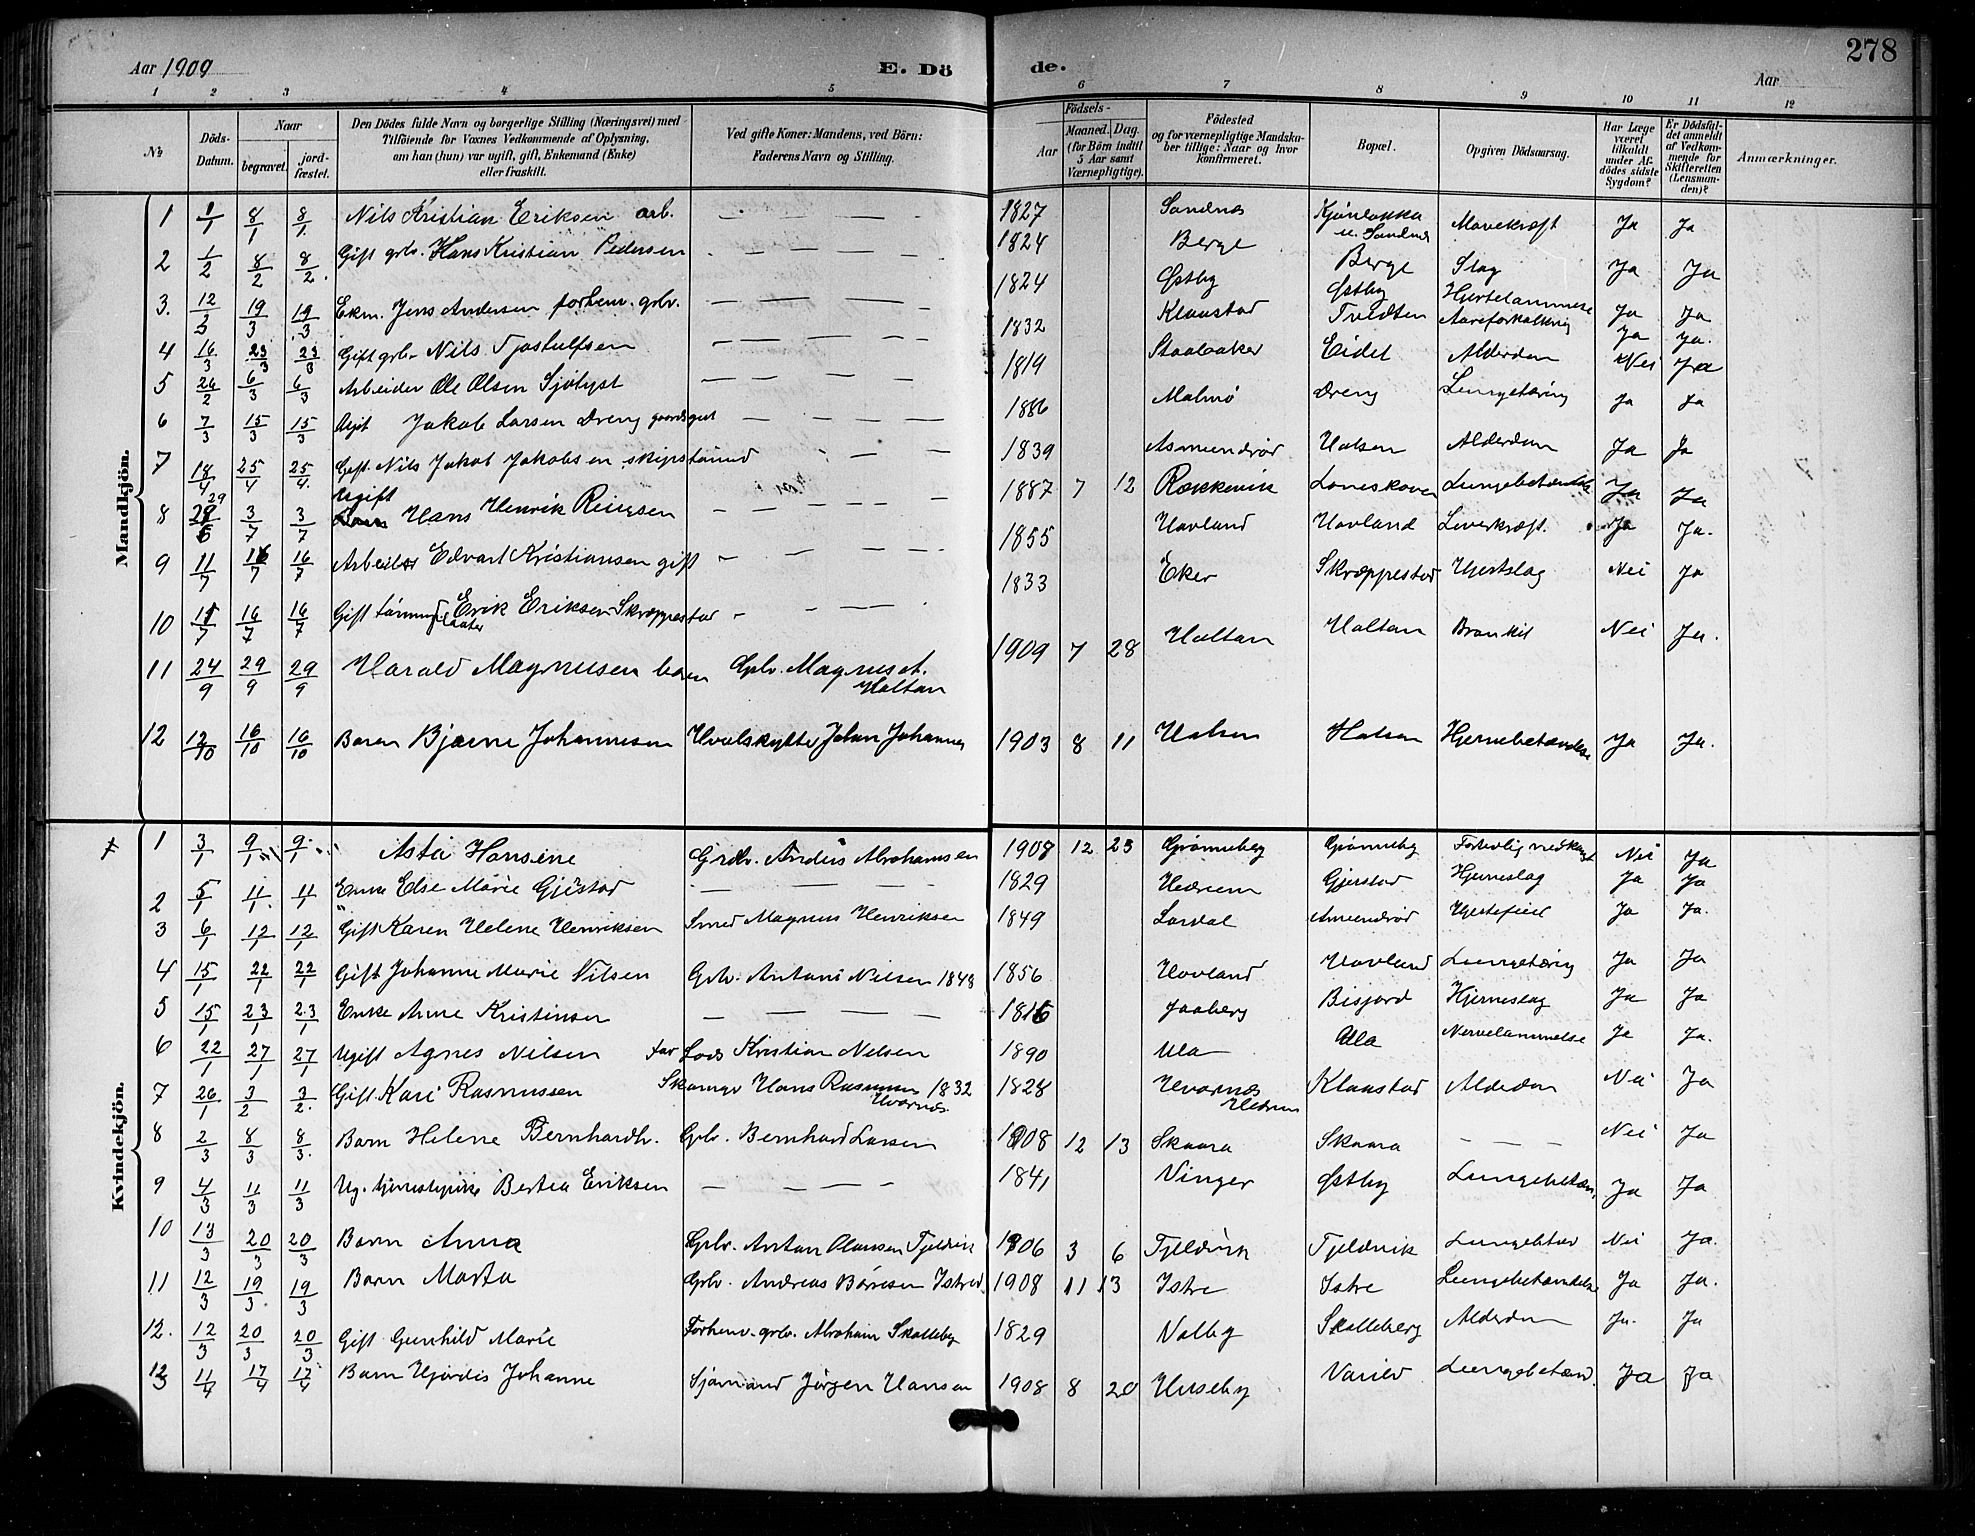 Aar 1909 E. Dö de. Aar 278
1 2 3 4 5 6 7 8 9 10 11 12
№ Döds-Datum. Naar begravet. jord-fæstet. Den Dödes fulde Navn og borgerlige Stilling (Næringsvei) med Tilföiende for Voxnes Vedkommende af Oplysning, om han (hun) var ugift, gift, Enkemand (Enke) eller fraskilt. Ved gifte Koner: Mandens, ved Börn: Faderens Navn og Stilling. Födsels- Aar Maaned. Dag. (for Börn indtil 5 Aar samt Værnepligtige). Födested og for værnepligtige Mandska-ber tillige: Naar og hvor konfirmeret. Bopæl. Opgiven Dödsaarsag. Har Læge været tilkaldt under Af-dödes sidste Sygdom? Er Dödsfal-det anmeldt af Vedkom-mende for Skifteretten (Lensman-den)? Anmærkninger.
Mandkjön.
1 1/1 8/1 8/1 Nils Kristian Eriksen arb. — — — — 1827 Sandnes Mavekræft Ja Ja
2 1/2 8/2 8/2 Gift grbr. Hans Kristian Pedersen — — — — 1824 Berge Berge Slag Ja Ja
3. 12/3 19/3 19/3 Ekm. Jens Andersen forhenv. grbr. — — — 1824 Østby Østby Hjertelammelse Ja Ja
4 16/3 23/3 23/3 Gift grbr. Nils Tjostulfsen — — — 1832 Klaastad Tveidten Aareforkalkning Ja Ja.
5 26/2 6/3 6/3 Arbeider Ole Olsen Sjölyst — — — 1819 Eidet Alderdom Nei Ja
6 7/3 15/3 15/3 Ugift Jakob Larsen Dreng gaardsgut — — — 1886 Malmö Dreng Lungetæring Ja Ja
7 18/4 25/4 25/4 Gift Nils Jakob Jakobsen skipstömmd — — 1839 Asmundrød Halsen Alderdom Ja Ja
8 29/6 3/7 3/7 Ugift Hans Henrik — — — 1887 7 12 Rækkevik Loveskoven Lungebetændelse Ja Ja
9 11/7 16/7 16/7 Arbeider Edvart Kristiansen gift — — — 1855 Hovland Hovland Leverkræft. Ja Ja.
10 11/7 16/7 16/7 Gift Erik Eriksen Skræppestad — — — 1833 Eker Skræppestad Hjertslag Nei Ja
11 24/9 29/9 29/9 Harald Magnusen barn Grbr. Magnus A. Holtan 1909 7 28 Holtan Holtan Bronkit Nei Ja.
12 12/10 16/10 16/10 Barn Bjarne Johannesen Hvalskytte Johan Johannes 1903 8 11 Halsen Halsen Hjernebetændelse Ja Ja.
Kvindekjön.
1 3/1 9/1 9/1 Asta Hansine Grdbr. Anders Abrahamsen 1908 12 23 Grønneberg Grønneby Nei Ja
2 5/1 11/1 11/1 Enke Else Marie Gjerstad — — — 1829 Hedrum Gjerstad Hjerneslag Ja Ja
3 6/1 12/1 12/1 Gift Karen Helene Henriksen Smed Magnus Henriksen 1849 Lardal Amundrød Hjertefeil Ja Ja.
4 15/1 22/1 22/1 Gift Johanne Marie Nilsen Grbr. Antoni Nielsen 1848 1856 Hovland Hovland Lungetæring Ja Ja
5 15/1 23/1 23/1 Enke Anne Kristinsen — — — — 1816 Jaaberg Bisjord Hjerneslag Ja Ja
6 22/1 27/1 27/1 Ugift Agnes Nilsen far Lods Kristian Nelsen 1890 Ula Ula Nervelammelse Ja Ja.
7 26/1 3/2 3/2. Gift Kari Rasmussen Skomgr Hans Rasmussen 1832 Hvarnes 1828 Hvarnes Hedrum Klaastad Alderdom Nei Ja
8 2/3 8/3 8/3. Barn Helene Bernhardh. Grbr. Bernhard Larsen 1908 12 13 Skaara Skaara — — — Nei Ja
9 4/3 11/3 11/3 Ug. tjenestepike Bertea Eriksen — — — — 1841 Vinger Østby Lungebetæn. Ja Ja
10 13/3 20/3 20/3 Barn Anna Grbr. Anton Olaussen Tjeldvik 1906 3 6 Tjeldvik Tjeldvik Lungebetæn Nei Ja.
11 12/3 19/3 19/3 Barn Marta Grbr. Andreas Börresen Istre 1908 11 13 Istre Istre Lungebetændelse Ja Ja.
12. 12/3 20/3 20/3 Gift Gunhild Marie Forhenv. grbr. Abraham Skalleberg 1829 Valby Skalleberg Alderdom Ja. Ja
13 11/4 17/4 17/4 Barn Hjördis Johanne Sjömand Jörgen Hansen 1908 8 20 Huseby Varild Lungebetænd. Ja Ja